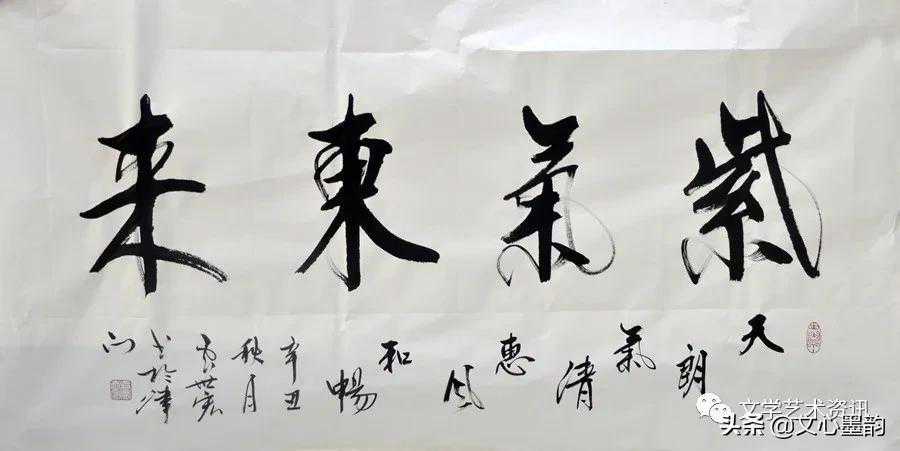 紫氣東来
天朗
氣清
惠风
和暢
辛丑
秋月
世宏
书於津
门
文学艺术资讯
头条@文心墨韵